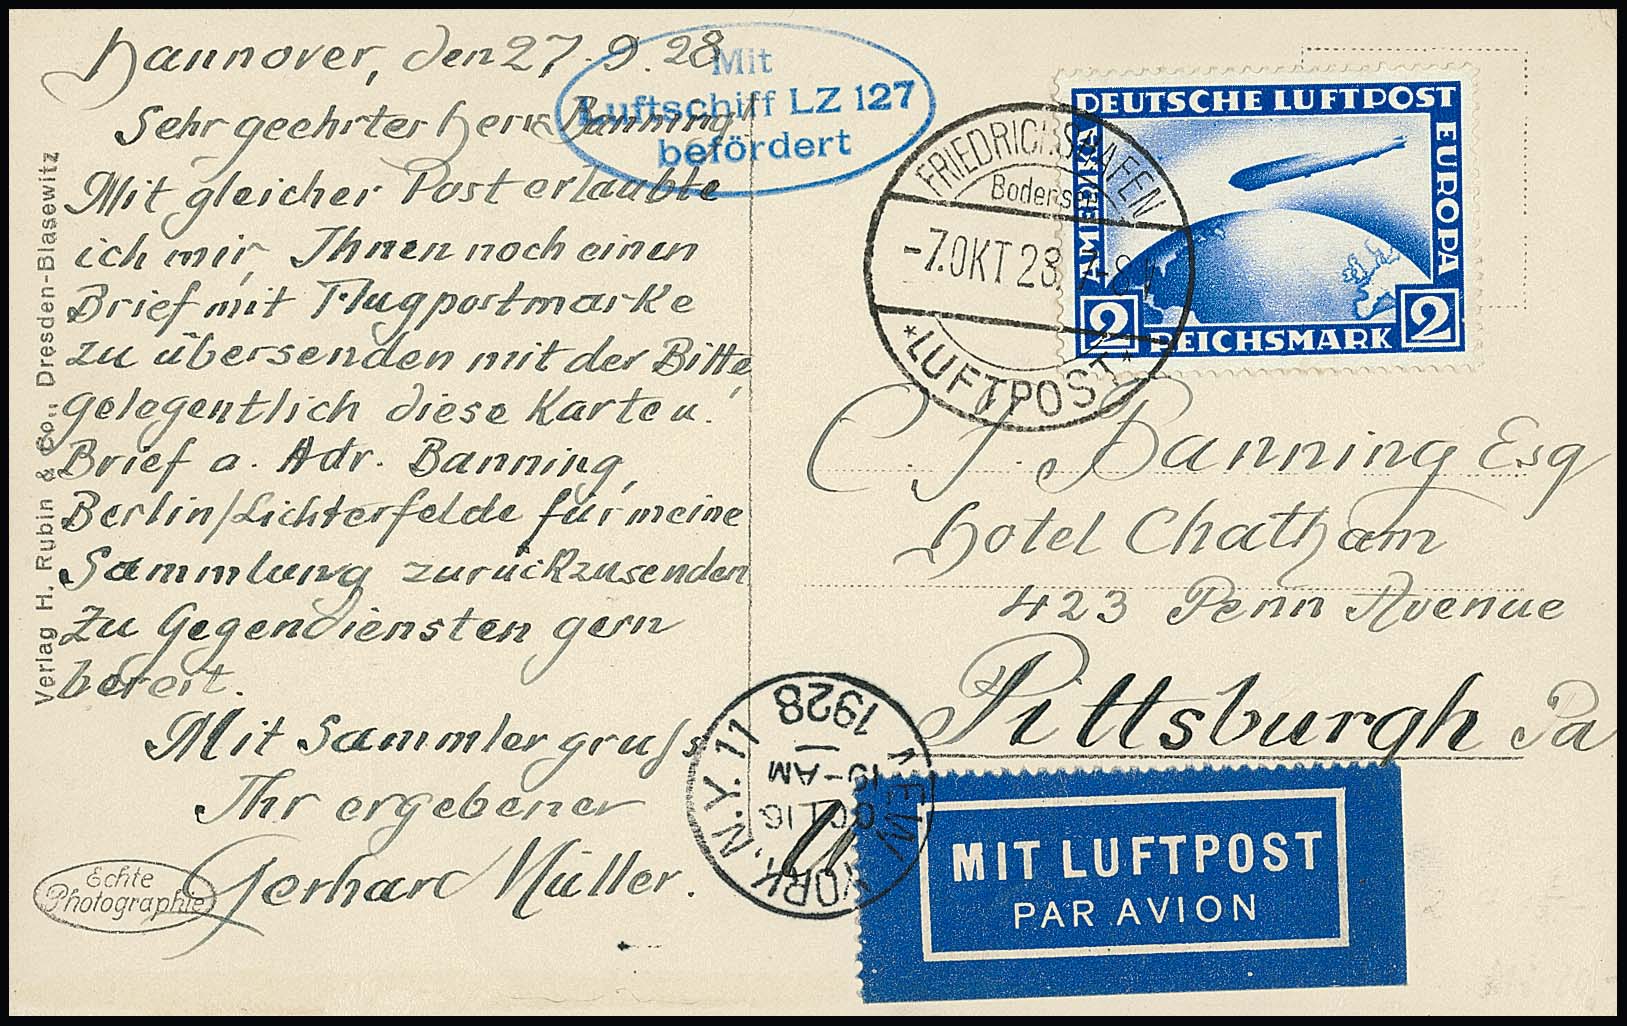 Hannover, den 27. 9. 28
Sehr geehrter Herr Banning
Mit gleicher Post erlaubte
ich mir, Ihnen noch einen
Brief mit Flugpostmarke
zu übersenden mit der Bitte,
gelegentlich diese Karte u.
Brief a. Adr. Banning,
Berlin/Lichterfelde für meine
Sammlung zurückzusenden
Zu Gegendiensten gern
bereit.
Mit Sammlergruss
Ihr ergebener
Gerhard Müller.
Echte
Photographie
Verlag H. Rubin & Co., Dresden-Blasewitz
Mit
Luftschiff LZ 127
befördert
FRIEDRICHSHAFEN
Bodensee
-7.OKT 28. 7-8 V
*LUFTPOST*
DEUTSCHE LUFTPOST
EUROPA
AMERIKA
2 REICHSMARK 2
C. J. Banning Esq
Hotel Chatham
423 Penn Avenue
Pittsburgh Pa
NEW YORK, N.Y. 11
OCT 16
10-AM
1928
MIT LUFTPOST
PAR AVION